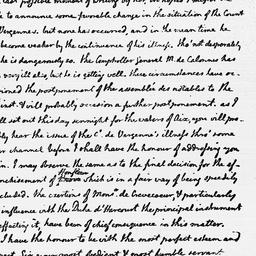 last possible moment of
to announce some favorable change in the situation of the Count
Vergennes. but none has occurred, and in the mean time he
become weaker by the continuance of his illness. tho' not desperately
he is dangerously so. the Comptroller General M. de Calonnes has
very ill also, but he is getting well. these circumstances have oc-
sioned the postponement of the assemblée des notables to the
inst. & will probably occasion a further postponement. as I
ll set out this day sennight for the waters of Aix, you will pro-
bly hear the issue of the Ct. de Vergennes's illness thro' some
er channel before I shall have the honour of addressing you
in. I may observe the same as to the final decision for the ef-
nchisement of Honfleur which is in a fair way of being speedily
cluded. the exertions of Monsr. de Crevecoeur, & particularly
influence with the Duke d'Harcourt the principal instrument
effecting it, have been of chief consequence in this matter.
I have the honour to be with the most perfect esteem and
Sir your most obedient & most humble servant